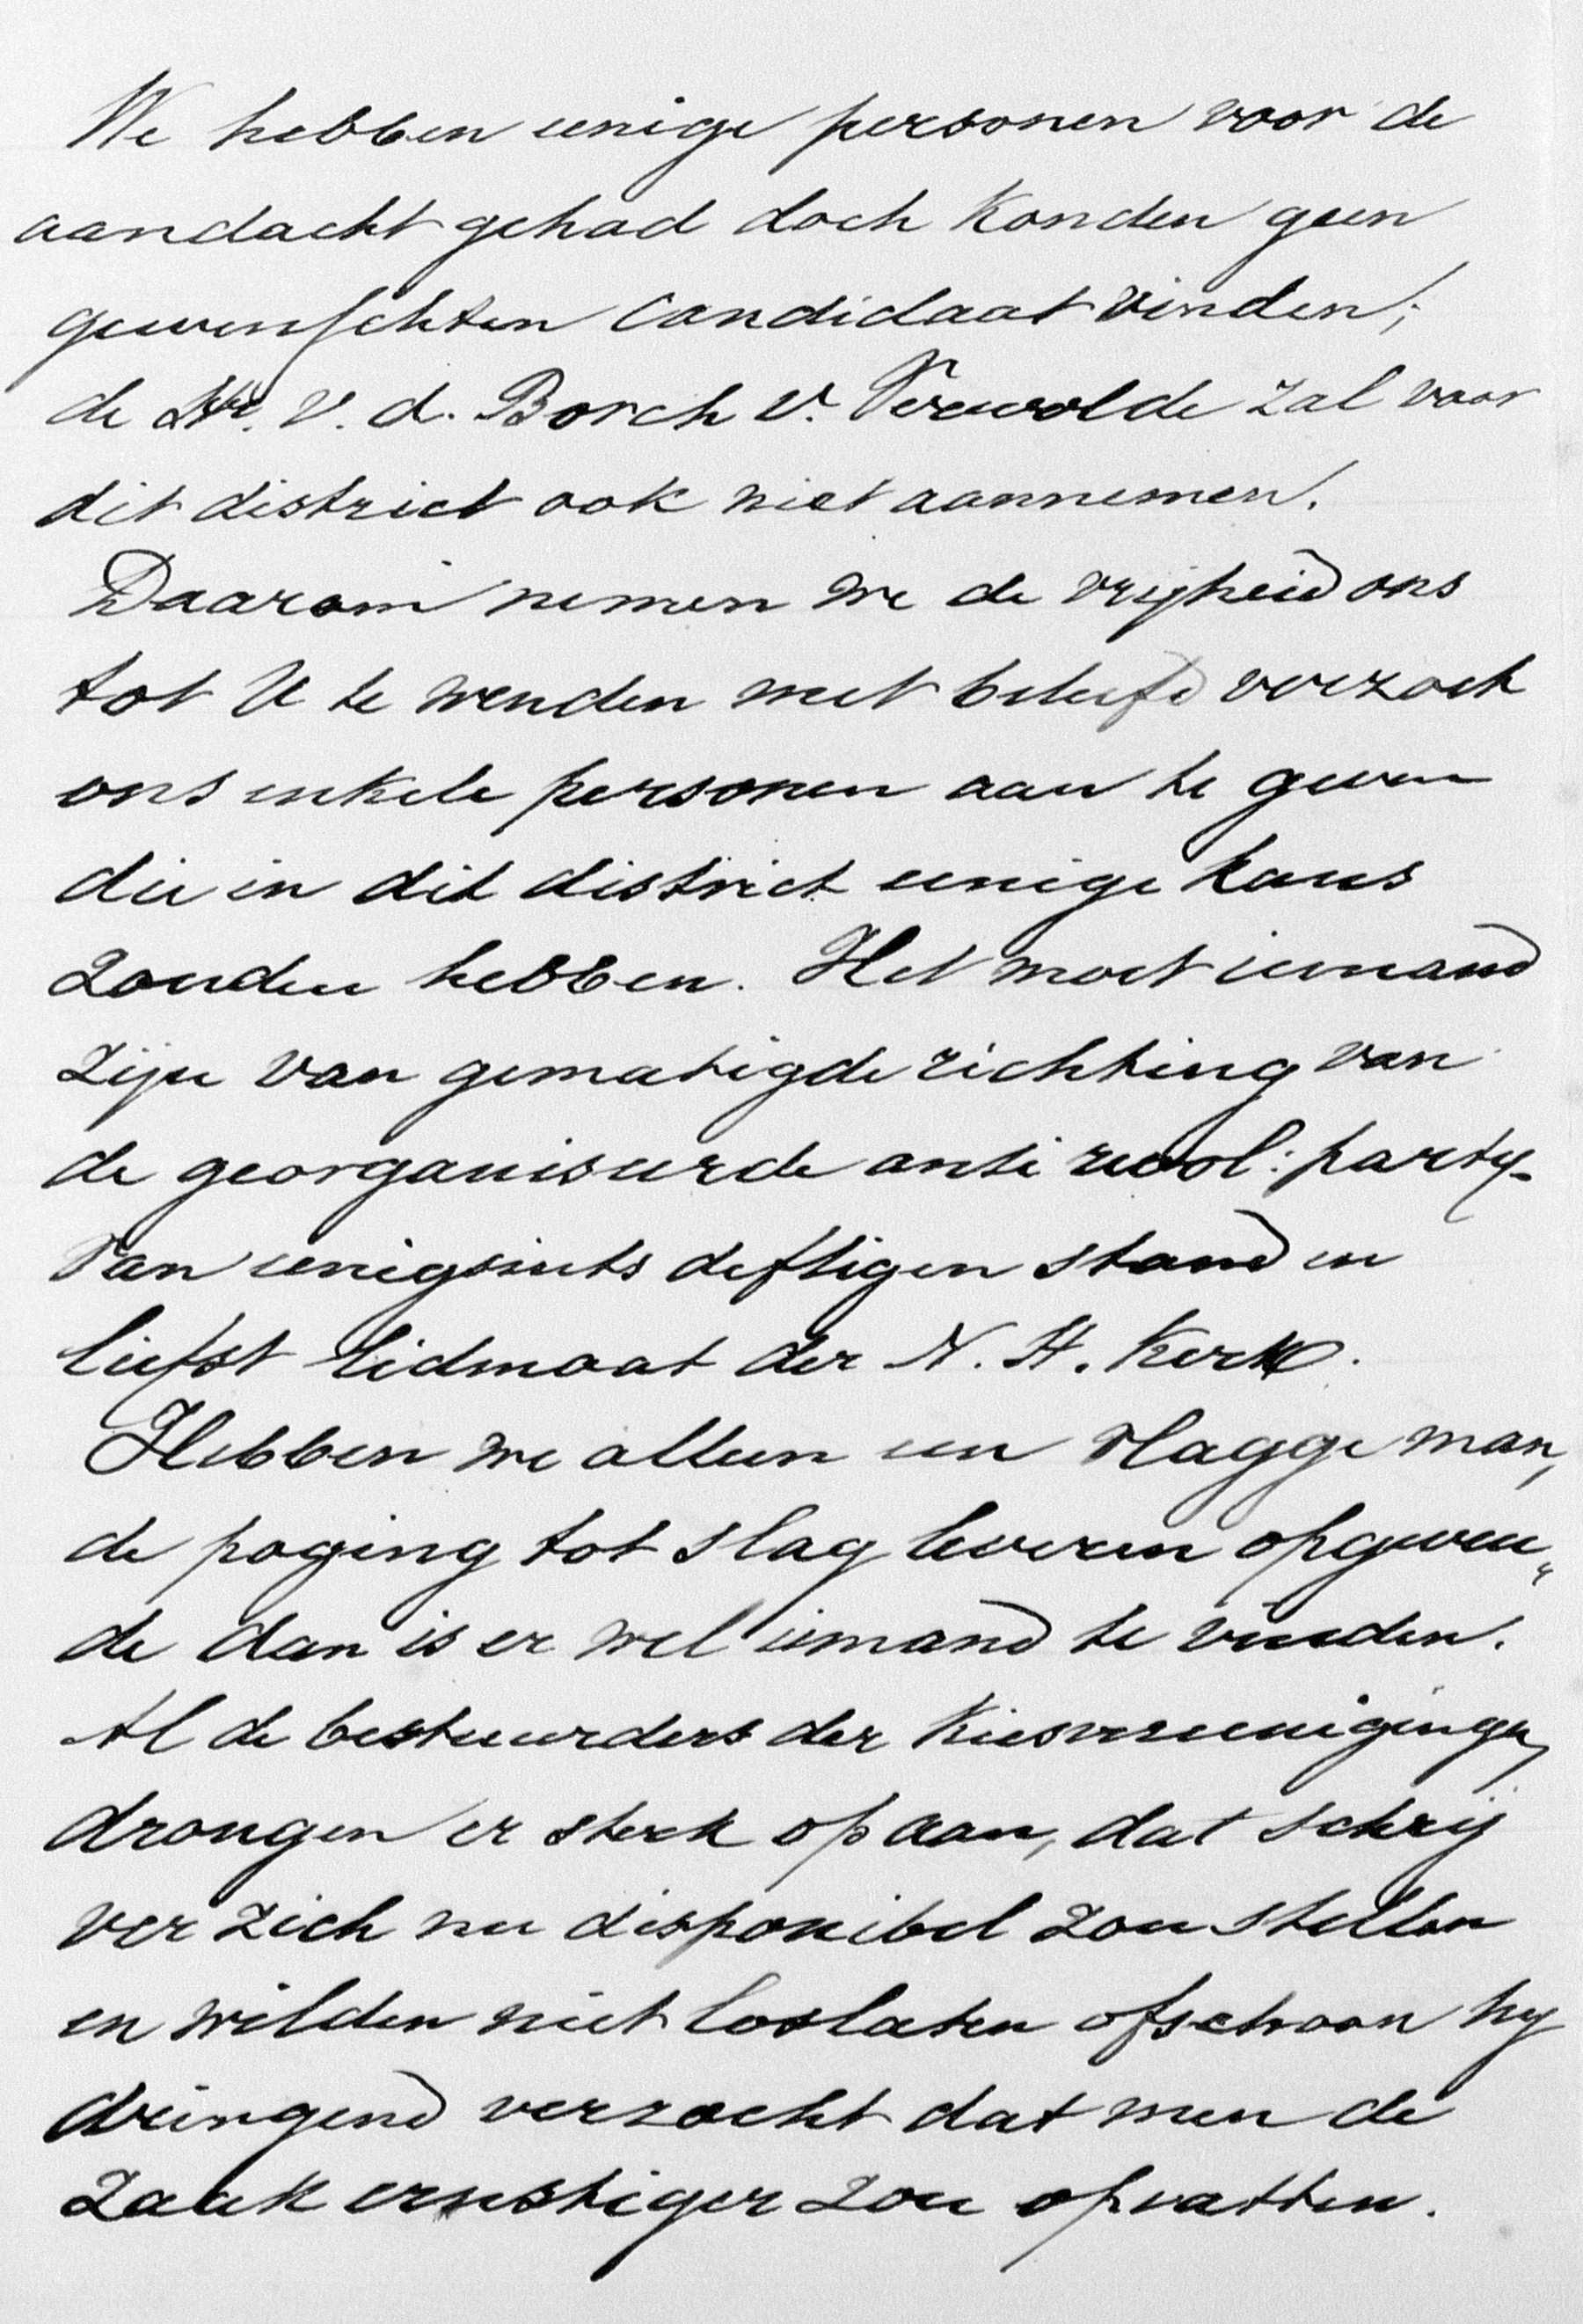 We hebben eenige personen voor de
aandacht gehad doch konden geen
gewenschten Candidaat vinden;
de Hr. V. d. Borch v. Verwolde zal voor
dit district ook niet aannemen.
Daarom nemen we de vrijheid ons
tot U te wenden met beleefd verzoek
ons enkele personen aan te geven
die in dit district eenige kans
zouden hebben. Het moet iemand
zijn van gematigde richting van
de georganiseerde anti revol: party.
Van eenigsints deftigen stand en
liefst lidmaat der N. H. Kerk.
Hebben we alleen een vlagge man,
de poging tot slag leveren opgeven„
de dan is er wel iemand te vinden.
Al de bestuurders der Kiesvereenigingen
drongen er sterk op aan, dat schrij
ver zich nu disponibel zou stellen
en wilden niet loslaten ofschoon hy
dringend verzocht dat men de
zaak ernstiger zou opvatten.